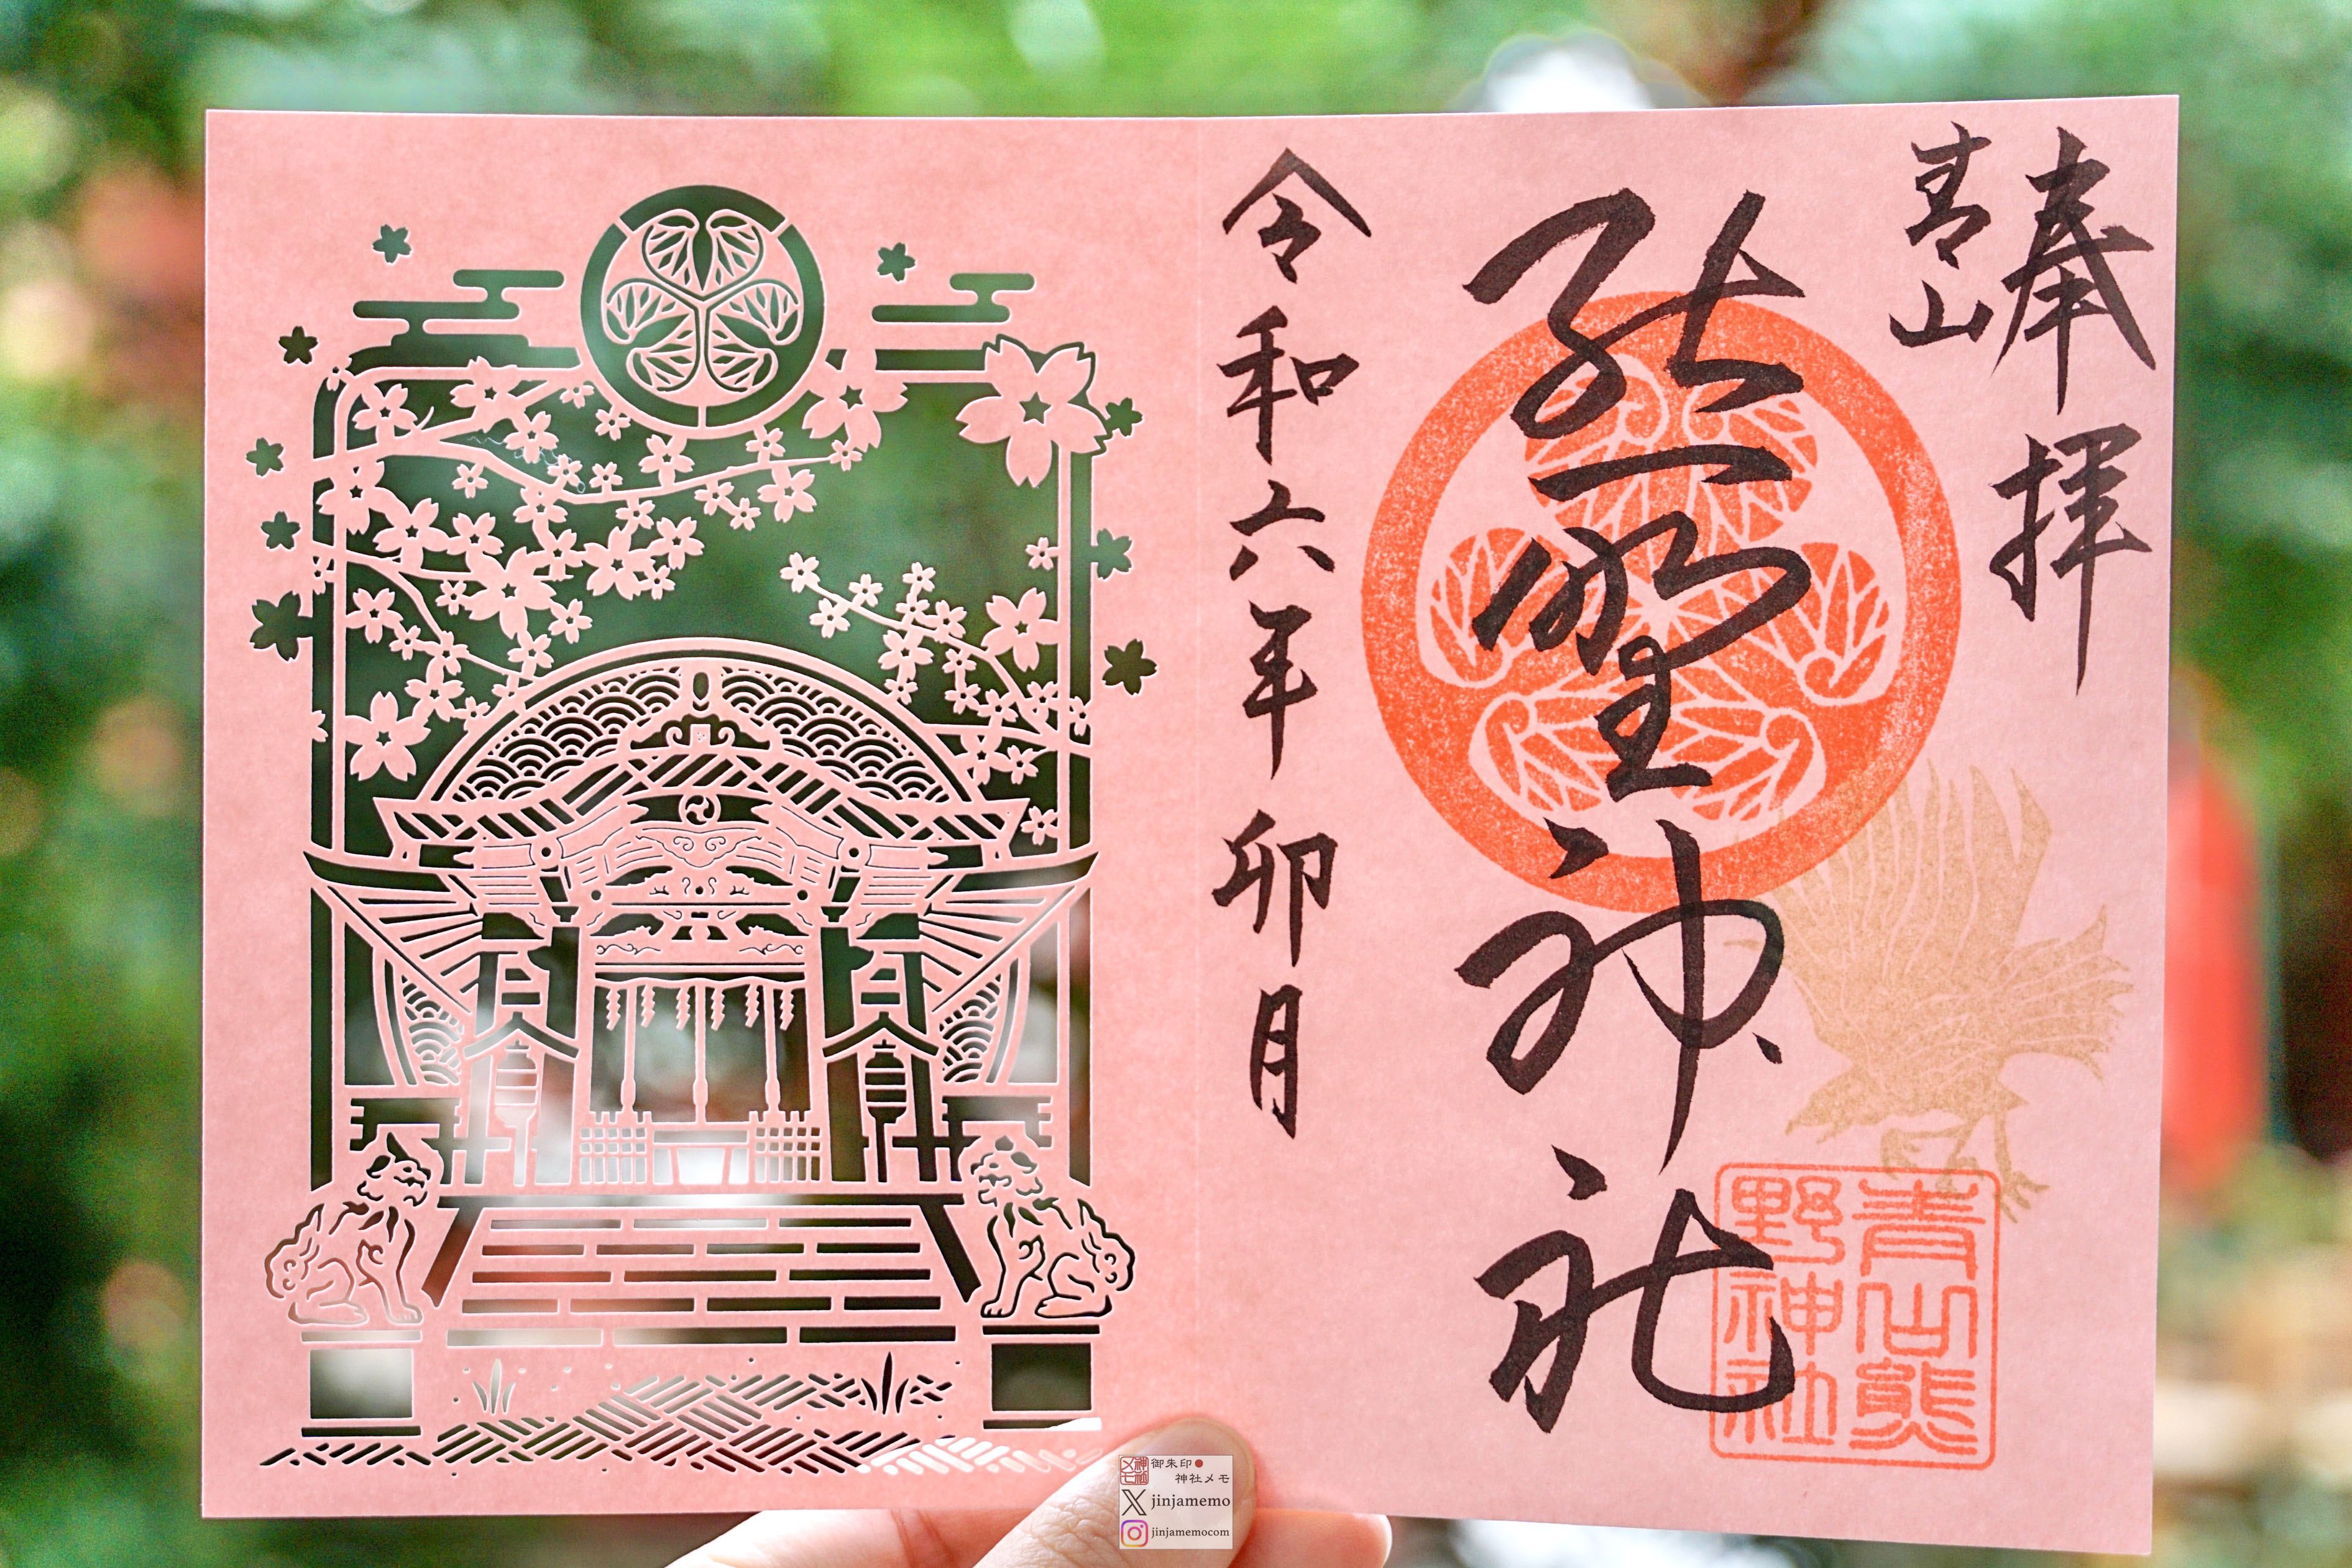 奉拝
青山
熊野神社
令和六年 卯月
青山熊
野神社
神社メモ
御朱印●
神社メモ
jinjamemo
jinjamemocom